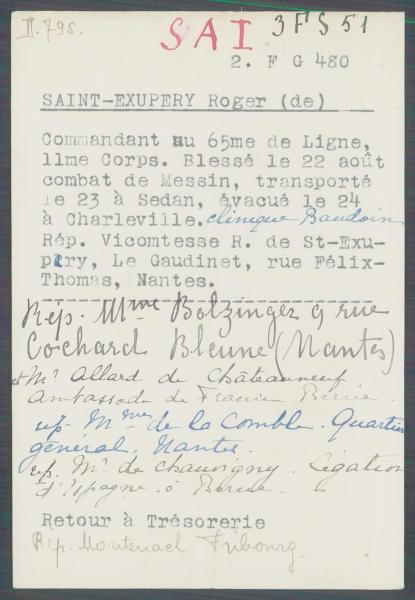 II.795.
SAI 3FS51
2. F G 480
SAINT-EXUPERY Roger (de)
Commandant au 65me de Ligne,
11me Corps. Blessé le 22 août
combat de Messin, transporté
le 23 à Sedan, évacué le 24
à Charleville. clinique Baudoin
Rép. Vicomtesse R. de St-Exu-
péry, Le Gaudinet, rue Félix-
Thomas, Nantes.
Rép. Mme Bolzinger 9 rue
Cochard Bleune (Nantes)
et Mr Allard de Châteauneuf
Ambassade de France Berne.
rép. Mme de la Comble. Quartier
général, Nantes.
rép. Mr de Chauvigny. Légation
d'Espagne à Berne.
Retour à Trésorerie
Rép. Montenach Fribourg.